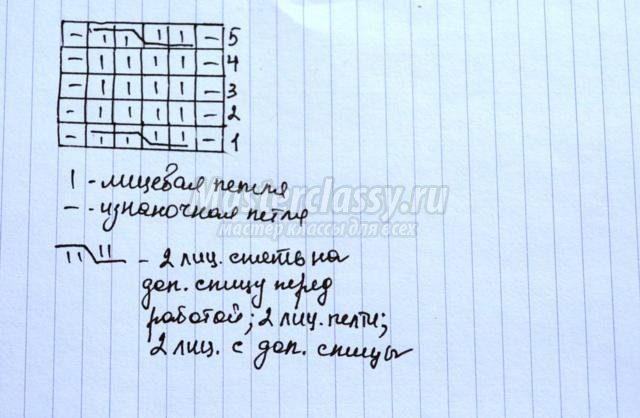 – | | | | – 5
– | | | | – 4
– | | | | – 3
– | | | | – 2
– | | | | – 1
| - лицевая петля
– - изнаночная петля
Masterclassy.ru
мастер классы для всех
– 2 лиц. снять на
доп. спицу перед
работой; 2 лиц. петли;
2 лиц. с доп. спицы